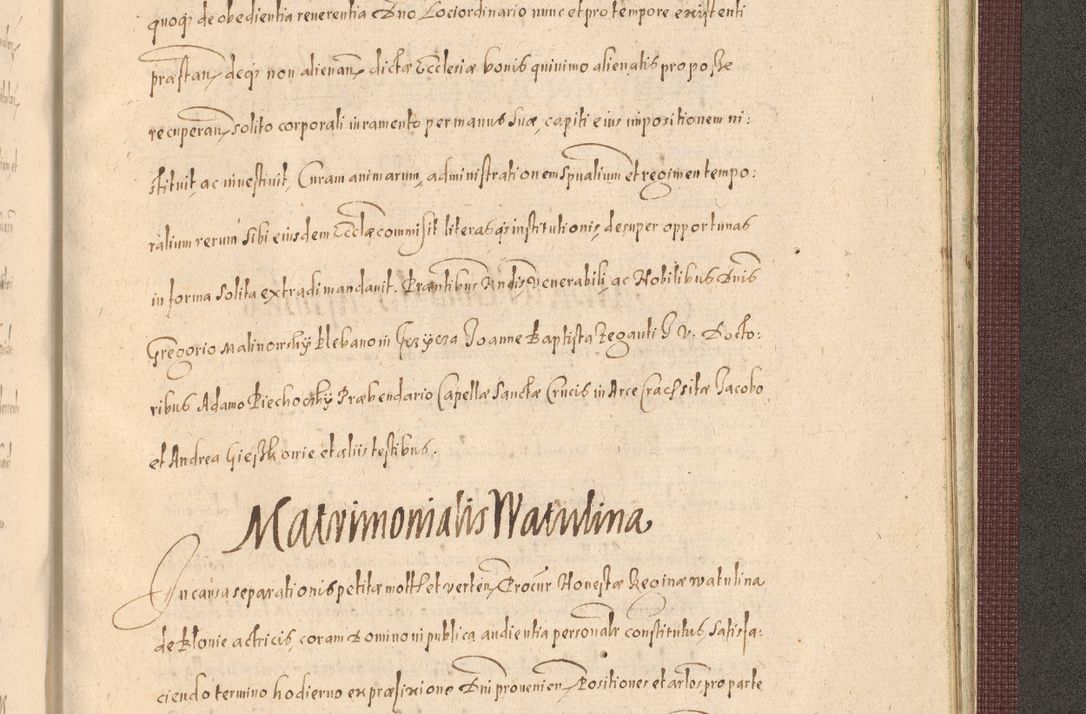 quoq; de obedientia reuerentia Dno Lociordinario nunc et pro tempore existenti
præstan, deq; non alienan, dictæ Ecclesiæ bonis quinimo alienatis pro posse
recuperan, solito corporali iuramento per manus suæ, capiti eius impositionem ni:
stituit, ac inuestiuit, Curam animarum, administrationem Spualium et regimen tempo:
ralium rerum sibi eiusdem Ecclæ commisit literasq; institutionis, desuper opportunas
in forma solita extradi mandauit. Præntibus Rndis Venerabili, ac Nobilibus Dnis
Gregorio Malinowsky Plebano in Joanne Baptista Zeganti J. V. Docto:
ribus Adamo Piechoczky Præbendario Capellæ Sanctæ Crucis in Arce Crac sitæ Jacobo
et Andrea et aliis testibus.
Matrimonialis Watulina
In causa separationis petitæ mott et verten, Procur Honestæ Reginæ watulina
de Klonie actricis, coram Domino ni publica audientia personalr constitutus, satisfa:
ciendo termino hodierno ex præfixione Dni prouenien, Positiones et artlos pro parte